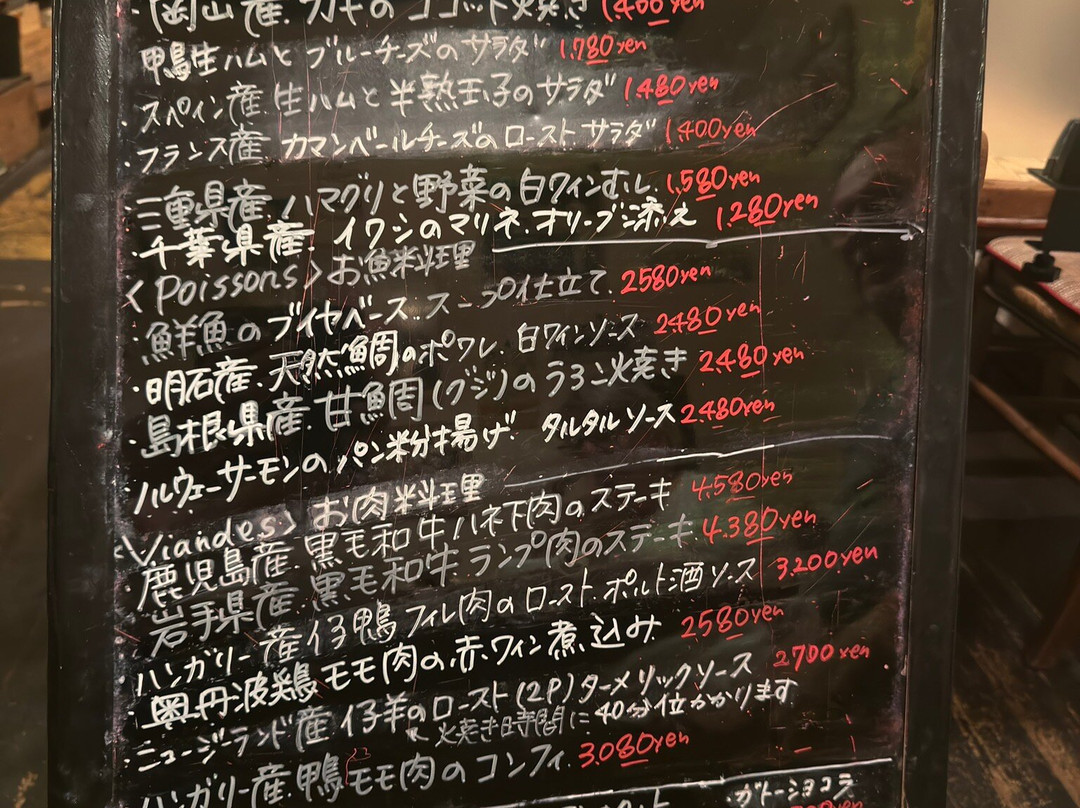 ・岡山産.カキのココット焼き 1.400yen
・鴨生ハムとブルーチーズのサラダ 1.780yen
・スペイン産.生ハムと半熟玉子のサラダ 1.480yen
・フランス産 カマンベールチーズのローストサラダ 1.400yen
・三重県産.ハマグリと野菜の白ワインむし. 1.580yen
・千葉県産 イワシのマリネ.オリーブ添え 1.280yen
<Poissons>お魚料理
・鮮魚のブイヤベース.スープ仕立て. 2580yen
・明石産.天然鯛のポワレ.白ワインソース 2480yen
・島根県産.甘鯛(グジ)のうろこ焼き 2480yen
・ノルウェーサーモンのパン粉揚げ タルタルソース 2.480yen
<Viandes>お肉料理
・鹿児島産.黒毛和牛ハネ下肉のステーキ 4.580yen
・岩手県産.黒毛和牛ランプ肉のステーキ 4.380yen
・ハンガリー産仔鴨フィレ肉のロースト.ポルト酒ソース 3.200yen
・奥丹波鶏モモ肉の赤ワイン煮込み 2580yen
・ニュージーランド産仔羊のロースト(2P)ターメリックソース 2700yen
焼き時間に40分位かかります
・ハンガリー産.鴨モモ肉のコンフィ. 3.080yen
・ガトーショコラ